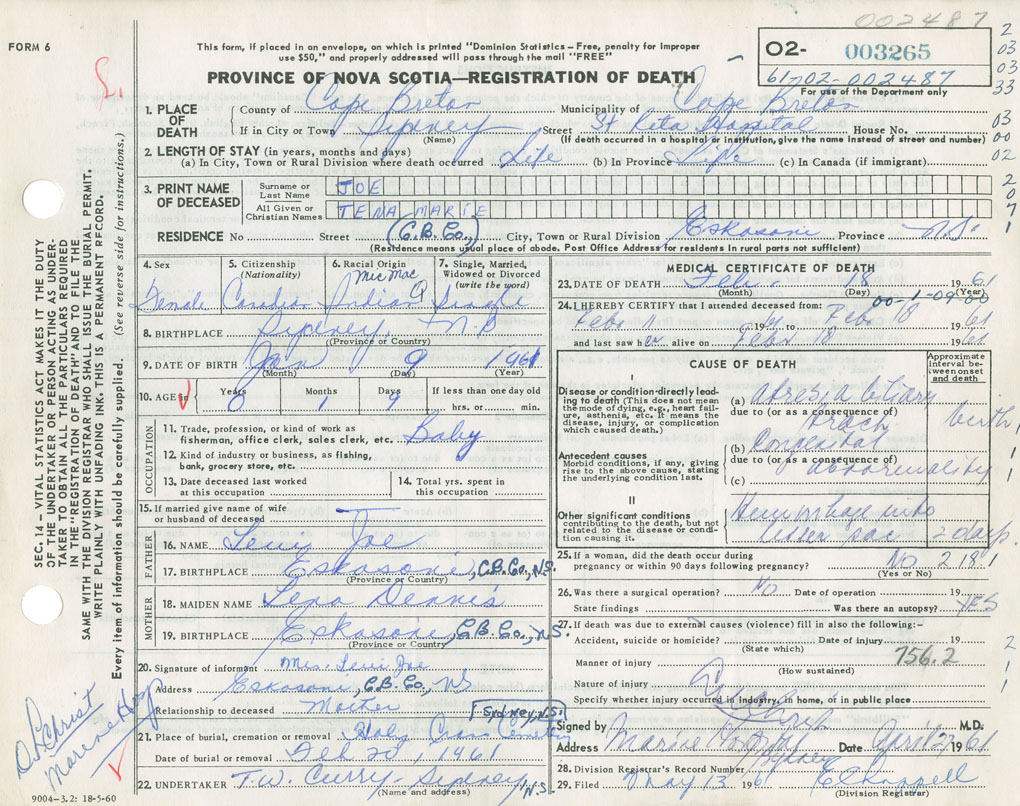 002487
FORM 6
This form, if placed in an envelope, on which is printed "Dominion Statistics – Free, penalty for improper
use $50," and properly addressed will pass through the mail "FREE"
PROVINCE OF NOVA SCOTIA—REGISTRATION OF DEATH
O2- 003265
61-02-002487
For use of the Department only
2
03
03
33
03
00
02
2
0
7
1
1. PLACE OF DEATH
County of Cape Breton Municipality of Cape Breton
If in City or Town Sydney Street St Rita Hospital House No.
(Name) (If death occurred in a hospital or institution, give the name instead of street and number)
2. LENGTH OF STAY (in years, months and days)
(a) In City, Town or Rural Division where death occurred Life (b) In Province Life (c) In Canada (if immigrant)
3. PRINT NAME OF DECEASED
Surname or Last Name JOE
All Given or Christian Names TENA MARIE
RESIDENCE No Street (C.B. Co.,) City, Town or Rural Division Eskasoni Province N.S.
(Residence means usual place of abode. Post Office Address for residents in rural parts not sufficient)
4. Sex
Female
5. Citizenship (Nationality)
Canadian
6. Racial Origin
Mic Mac
Indian
7. Single, Married, Widowed or Divorced (write the word)
Single
8. BIRTHPLACE Sydney N.S
(Province or Country)
9. DATE OF BIRTH Jan 9 1961
(Month) (Day) (Year)
10. AGE in Years Months Days If less than one day old
0 1 9 hrs. or min.
OCCUPATION
11. Trade, profession, or kind of work as
fisherman, office clerk, sales clerk, etc. Baby
12. Kind of industry or business, as fishing,
bank, grocery store, etc.
13. Date deceased last worked
at this occupation
14. Total yrs. spent in
this occupation
15. If married give name of wife
or husband of deceased
FATHER
16. NAME Joe
17. BIRTHPLACE Eskasoni, C.B. Co., N.S.
(Province or Country)
MOTHER
18. MAIDEN NAME Lena Dennis
19. BIRTHPLACE Eskasoni, C.B. Co., N.S.
(Province or Country)
20. Signature of informant Mrs. Joe
Address Eskasoni, C.B. Co., NS
Relationship to deceased Mother
[Sydney, N.S.
21. Place of burial, cremation or removal Holy Cross Cemetery
Date of burial or removal Feb 20, 1961
22. UNDERTAKER T.W. Curry - Sydney, N.S.
(Name and address)
9004–3.2: 18-5-60
SEC. 14 – VITAL STATISTICS ACT MAKES IT THE DUTY
OF THE UNDERTAKER OR PERSON ACTING AS UNDER-
TAKER TO OBTAIN ALL THE PARTICULARS REQUIRED
IN THE "REGISTRATION OF DEATH" AND TO FILE THE
SAME WITH THE DIVISION REGISTRAR WHO SHALL ISSUE THE BURIAL PERMIT.
WRITE PLAINLY WITH UNFADING INK. THIS IS A PERMANENT RECORD.
Every item of information should be carefully supplied. (See reverse side for instructions.)
MEDICAL CERTIFICATE OF DEATH
23. DATE OF DEATH Feb. 18 1961
(Month) (Day) (Year)
24. I HEREBY CERTIFY that I attended deceased from:
00-1-09-00
Feby 11 1961 to Feby 18 1961
and last saw her alive on Feby 18 1961
CAUSE OF DEATH
Approximate interval between onset and death
I
Disease or condition directly leading to death (This does not mean the mode of dying, e.g., heart failure, asthenia, etc. It means the disease, injury, or complication which caused death.)
(a) Atresia biliary
due to (or as a consequence of)
Trach birth
Antecedent causes
Morbid conditions, if any, giving rise to the above cause, stating the underlying condition last.
(b) Congenital
due to (or as a consequence of)
(c) abnormality
II
Other significant conditions
contributing to the death, but not related to the disease or condition causing it.
Hemorrhage into
lesser sac 2 days.
25. If a woman, did the death occur during
pregnancy or within 90 days following pregnancy? No 2 18 1
(Yes or No)
26. Was there a surgical operation? No Date of operation 19
State findings Was there an autopsy? YES
27. If death was due to external causes (violence) fill in also the following:–
Accident, suicide or homicide? Date of injury 19
(State which)
756.2
Manner of injury
(How sustained)
Nature of injury
Specify whether injury occurred in industry, in home, or in public place
2
1
1
Signed by M.D.
Address Marine Hosp Sydney Date April 27 1961
28. Division Registrar's Record Number
29. Filed May 13 1961
(Division Registrar)
Dr Christ
Marine Hosp